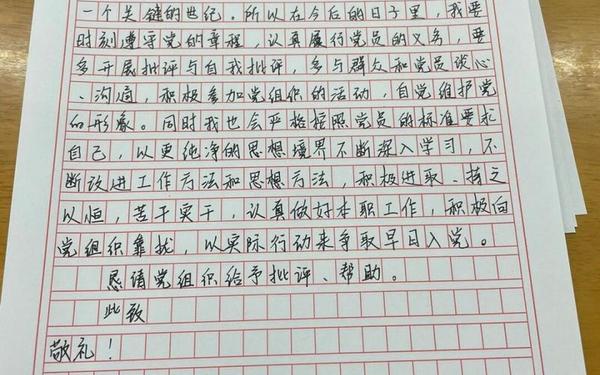 一个关键的世纪。所以在今后的日子里，我要
时刻遵守党的章程，认真履行党员的义务，要
多开展批评与自我批评，多与群众和党员谈心
、沟通，积极参加党组织的活动，自觉维护党
的形象。同时我也会严格按照党员的标准要求
自己，以更纯净的思想境界不断深入学习，不
断改进工作方法和思想方法，积极进取、持之
以恒，苦干实干，认真做好本职工作，积极向
党组织靠拢，以实际行动来争取早日入党。
恳请党组织给予批评、帮助。
此致
敬礼！